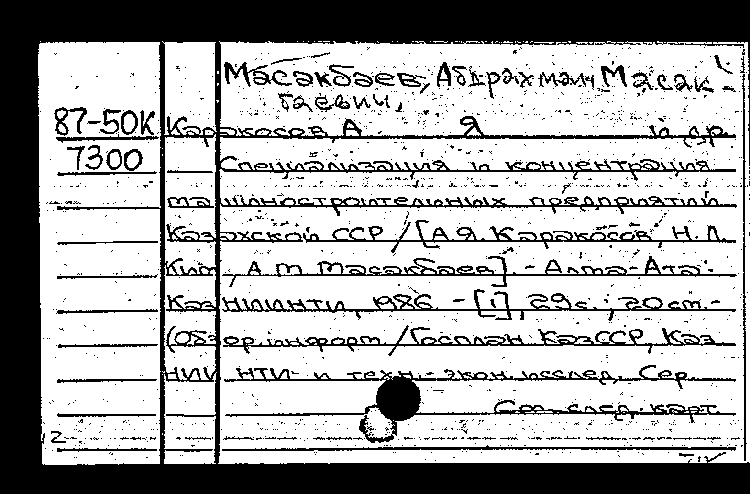 Масакбаев, Абдрахман Масак-
баевич,
87-50К Каракосов, А Я и др.
7300 Специализация и концентрация
машиностроительных предприятий
Казахской ССР / [А.Я. Каракосов, Н.Л.
Ким, А.М. Масакбаев] - Алма-Ата:
КазНИИНТИ, 1986. - [1], 29 с.; 20 см. -
(Обзор. информ. / Госплан КазССР, Каз
НИИ НТИ и техн.-экон. исслед. Сер.
См. след. карт.
2